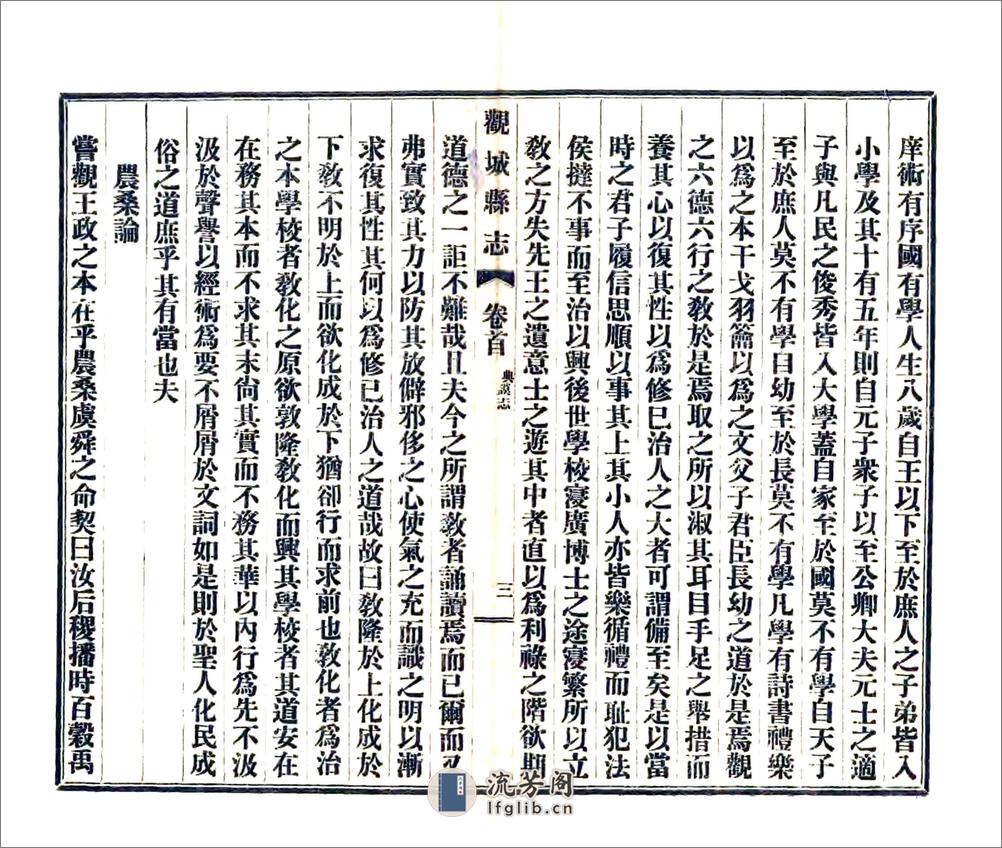 庠術有序國有學人生八歲自王以下至於庶人之子弟皆入
小學及其十有五年則自元子衆子以至公卿大夫元士之適
子與凡民之俊秀皆入大學蓋自家至於國莫不有學自天子
至於庶人莫不有學自幼至於長莫不有學凡學有詩書禮樂
以爲之本干戈羽籥以爲之文父子君臣長幼之道於是焉觀
之六德六行之敎於是焉取之所以淑其耳目手足之舉措而
養其心以復其性以爲修已治人之大者可謂備至矣是以當
時之君子履信思順以事其上其小人亦皆樂循禮而耻犯法
侯撻不事而至治以興後世學校寖廣博士之途寖繁所以立
敎之方失先王之遺意士之遊其中者直以爲利祿之階欲期
觀城縣志
卷首
典謨志
三
道德之一詎不難哉且夫今之所謂敎者誦讀焉而已爾而又
弗實致其力以防其放僻邪侈之心使氣之充而識之明以漸
求復其性其何以爲修已治人之道哉故曰敎隆於上化成於
下敎不明於上而欲化成於下猶卻行而求前也敦化者爲治
之本學校者敎化之原欲敦隆敎化而興其學校者其道安在
在務其本而不求其末尙其實而不務其華以內行爲先不汲
汲於聲譽以經術爲要不屑屑於文詞如是則於聖人化民成
俗之道庶乎其有當也夫
農桑論
嘗觀王政之本在乎農桑虞舜之命契曰汝后稷播時百穀禹
流芳阁
lfglib.cn